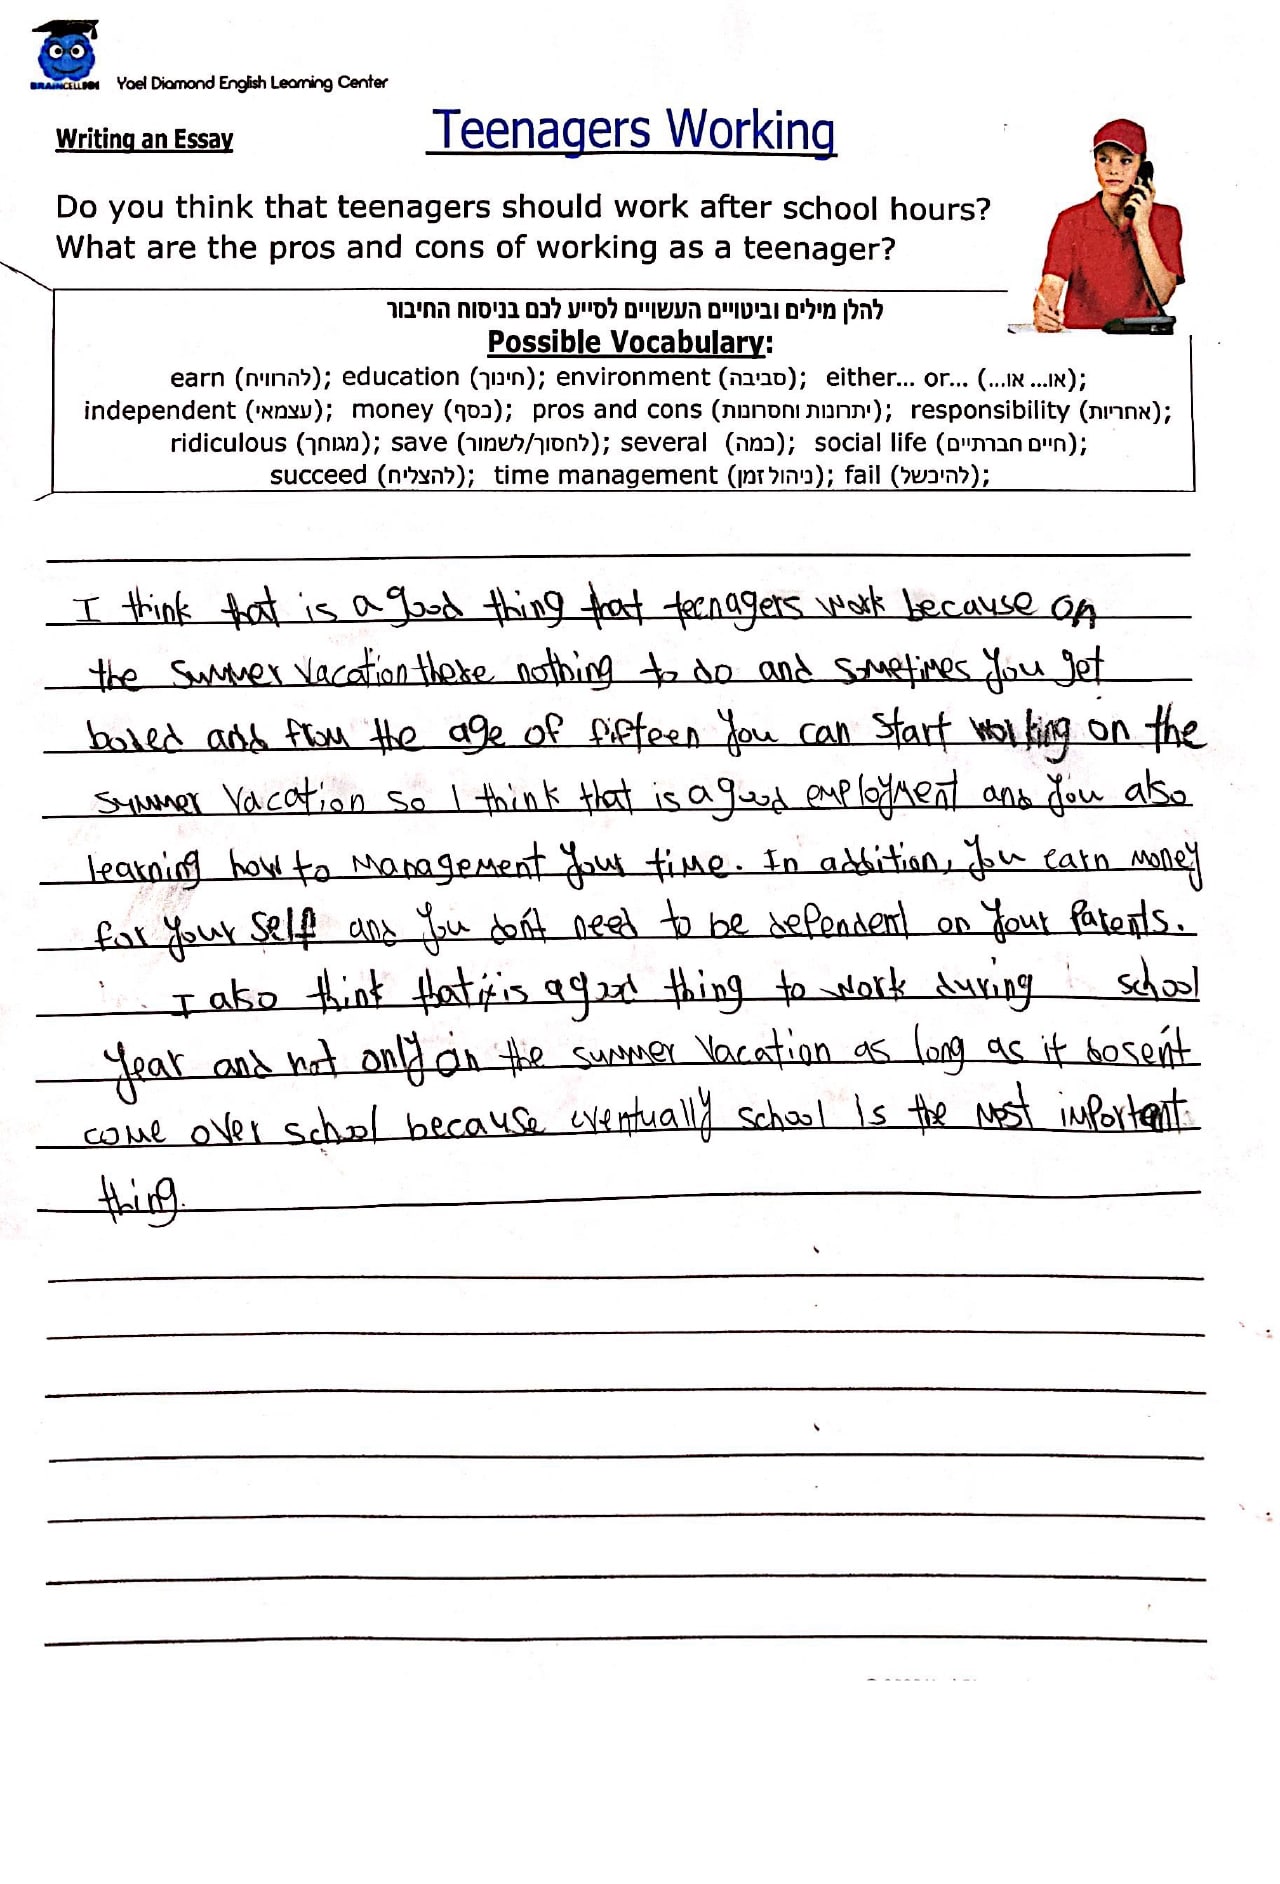 BRAINCELL001 Yael Diamond English Learning Center
Teenagers Working
Writing an Essay
Do you think that teenagers should work after school hours?
What are the pros and cons of working as a teenager?
להלן מילים וביטויים העשויים לסייע לכם בניסוח החיבור
Possible Vocabulary:
earn (להרוויח); education (חינוך); environment (סביבה); either... or... (או... או...);
independent (עצמאי); money (כסף); pros and cons (יתרונות וחסרונות); responsibility (אחריות);
ridiculous (מגוחך); save (לחסוך/לשמור); several (כמה); social life (חיים חברתיים);
succeed (להצליח); time management (ניהול זמן); fail (להיכשל);
I think that is a good thing that teenagers work because on
the summer vacation there nothing to do and sometimes you get
bored and from the age of fifteen you can start working on the
summer vacation so I think that is a good employment and you also
learning how to management your time. In addition, you earn money
for your self and you don't need to be dependent on your parents.
I also think that is a good thing to work during school
year and not only in the summer vacation as long as it dosen't
come over school because eventually school is the most important
thing.